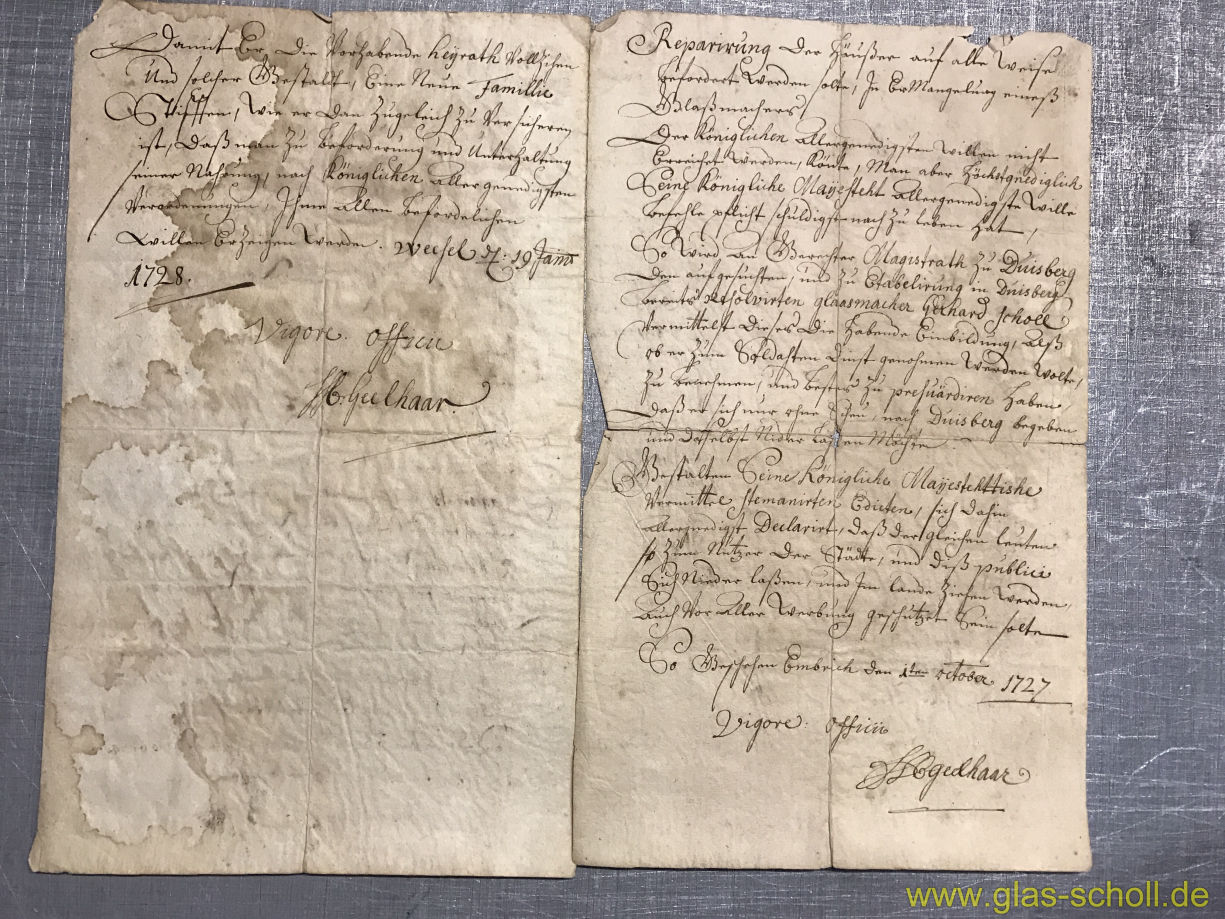 Damit Er, die Vorhabende heyrath Vollzihen
Und solcher Gestalt, Eine Neue Famillie
Stifften, wie er dan Zugeleich Zu Versicheren
ist, daß man Zu beforderung und Unterhaltung
seiner Nahrung, nach Königlichen allergenedigsten
Verordenungen, Ihme allen befordelichen
Willen Erzeigen Werde. Weesel d: 19 Jann
1728.
Vigore. officii
Geelhaar.
Reparirung der Häußer auf alle Weise
befordert Werden solte, In ErMangelung eineß
Glaßmachers,
der Königlichen Allergenedigsten Willen nicht
Erreichet Werden, Könte, Man aber Höchstgnediglich
Seine Königliche Maijesteht Allergenedigste Wille
befehle pflicht schuldigst nach Zu leben hat,
So Wird an Magistrath Zu Duisberg
den aufgesuchten, und zu Etabelirung in Duisberg
bereits resolvirten glaasmacher Gerhard Scholl
Vermittelst dieses die habende Einbildung, alß
ob er Zum Soldahten dinst genohmen Werden Wolte,
Zu benehmen, und bestens Zu presuardiren haben,
daß er sich nur ohne nach Duisberg begeben
und daselbst Nider laßen Möchte.
Gestalten Seine Königliche Maijestehttishe
Vermittel stemanirten Edicten, sich dahin
allergnedigst Declarirt, daß der gleichen leuten
so Zum Nutzen der Städte, und deß publici
Sich Nieder laßen, und Im lande Ziehen Werden,
Auch Vor Aller Werbung geschützet Sein solte
So Geschehen Embrich den 1ten october 1727
Vigore. officii
geelhaar
www.glas-scholl.de